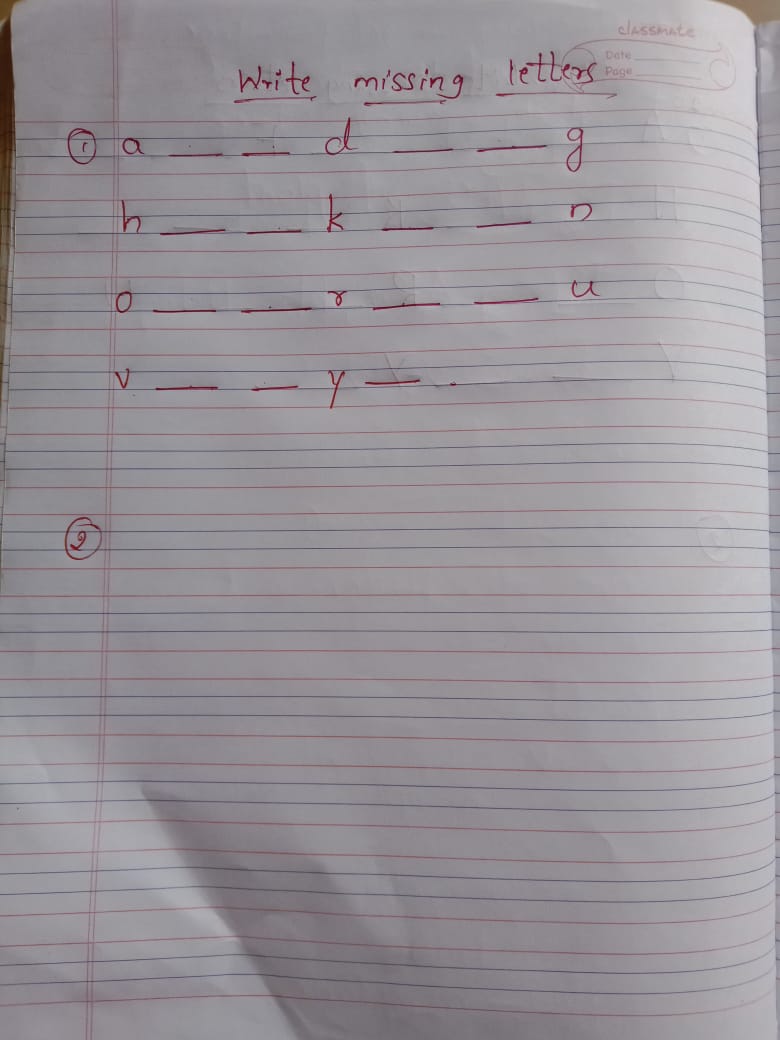 classmate
Date
Page
Write missing letters
① a __ __ d __ __ g
h __ __ k __ __ n
o __ __ r __ __ u
v __ __ y __ .
②